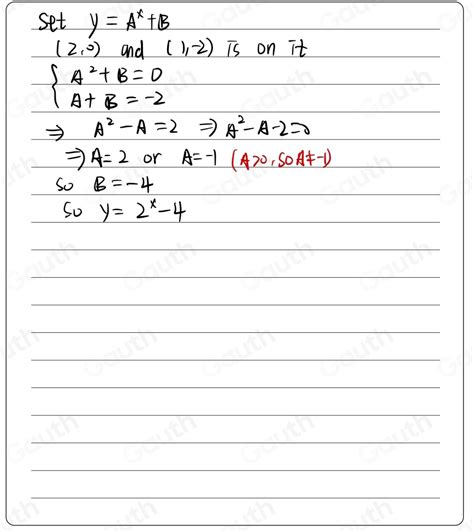 Set y = A^x + B
(2,0) and (1,-2) is on it
{ A² + B = 0
A + B = -2
⇒ A² - A = 2 ⇒ A² - A - 2 = 0
⇒ A = 2 or A = -1 (A>0, so A≠-1)
so B = -4
So y = 2^x - 4
Gauth